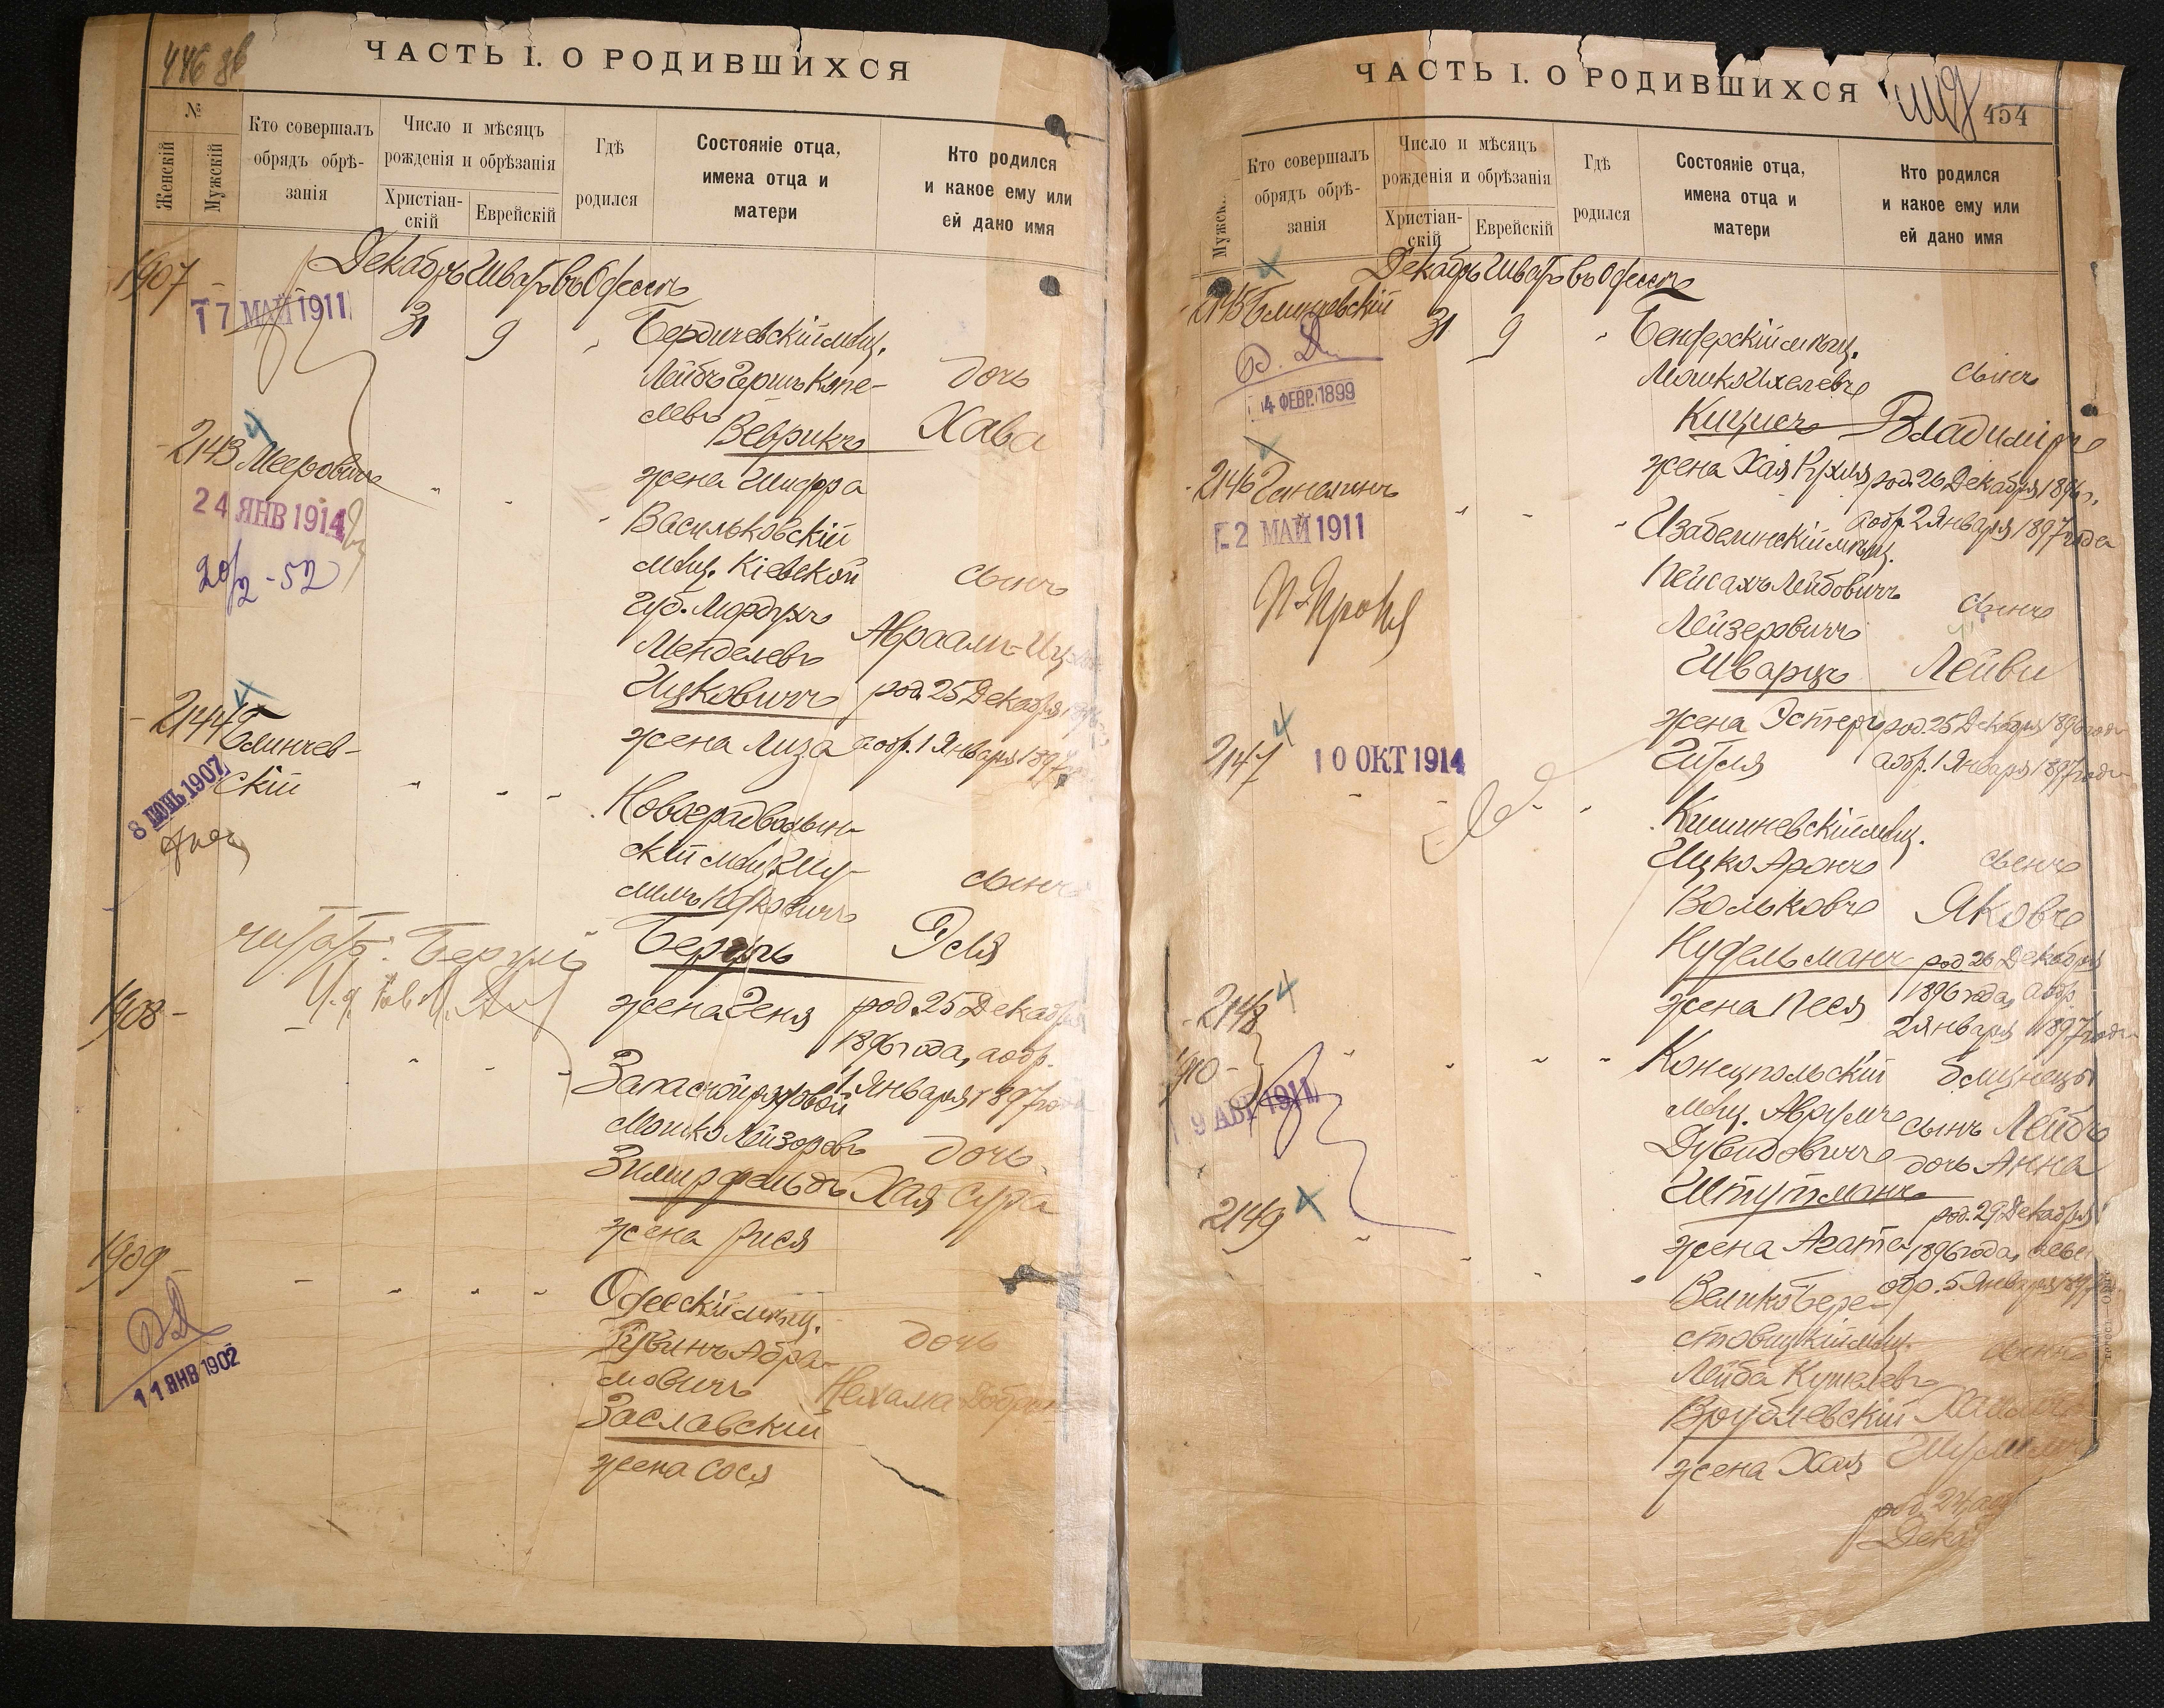 446 об
ЧАСТЬ I. О РОДИВШИХСЯ
№
Женскій
Мужскій
Кто совершалъ
обрядъ обрѣ-
занія
Число и мѣсяцъ
рожденія и обрѣзанія
Христіан-
скій
Еврейскій
Гдѣ
родился
Состояніе отца,
имена отца и
матери
Кто родился
и какое ему или
ей дано имя
Декабрь Шватъ въ Одессѣ
1907 -
17 МАЙ 1911
31 9
Бердичевскій мѣщ.
Лейбъ Гершъ Копе-
левъ
Веврикъ
жена Шифра
дочь
Хава
2143 Мееровичъ
24 ЯНВ 1914
20/2 - 52
Васильковскій
мѣщ. Кіевской
губ. Мордухъ
Менделевъ
Ицковичъ
жена Лиза
сынъ
Авраамъ-Иц
род. 25 Декабря
а обр. 1 Января 1897
2144 Блинчев-
скій
8 ІЮНЬ 1907
Новоградволын-
скій мѣщ. Шу-
лимъ Юдковичъ
Бергъ
жена Геня
сынъ
Эля
род. 25 Декабря
1896 года, а обр.
1 Января 1897 года
читать:
1908 -
Запасной рядовой
Мошко Лейзоровъ
Зильберфельдъ
жена Рися
дочь
Хая Сура
1909 -
11 ЯНВ 1902
Одесскій мѣщ.
Рувинъ Абра-
мовичъ
Заславскій
жена Сося
дочь
Нехама Добрыш
ЧАСТЬ I. О РОДИВШИХСЯ
454
Мужск.
Кто совершалъ
обрядъ обрѣ-
занія
Число и мѣсяцъ
рожденія и обрѣзанія
Христіан-
скій
Еврейскій
Гдѣ
родился
Состояніе отца,
имена отца и
матери
Кто родился
и какое ему или
ей дано имя
Декабрь Шватъ въ Одессѣ
2145 Блинчевскій
4 ФЕВР. 1899
31 9
Бендерскій мѣщ.
Мошко Ихелевъ
Кицисъ
жена Хая Рухля
сынъ
Владиміръ
род. 26 Декабря 1896 г.,
а обр. 2 Января 1897 года
2146
2 МАЙ 1911
Изабелинскій мѣщ.
Пейсахъ Лейбовичъ
Лейзеровичъ
Шварцъ
жена Эстеръ
Гитля
сынъ
Лейви
род. 25 Декабря 1896 года
а обр. 1 Января 1897 года
2147
10 ОКТ 1914
Кишиневскій мѣщ.
Ицко Аронъ
Вольковъ
Нудельманъ
жена Песя
сынъ
Яковъ
род. 26 Декабря
1896 года, а обр.
2 января 1897 года
2148
1910 -
9 АВГ 1911
Конецпольскій
мѣщ. Аврумъ
Дувидовичъ
Штутманъ
жена Агата
близнецы
сынъ Лейбъ
дочь Анна
род. 29 Декабря
1896 года, а сынъ
обр. 5 Января 1897
2149
Великобере-
стовицкій мѣщ.
Лейба Кушелевъ
Врублевскій
жена Хая
сынъ
Хаимъ
Шулимъ
род. 27
Дека